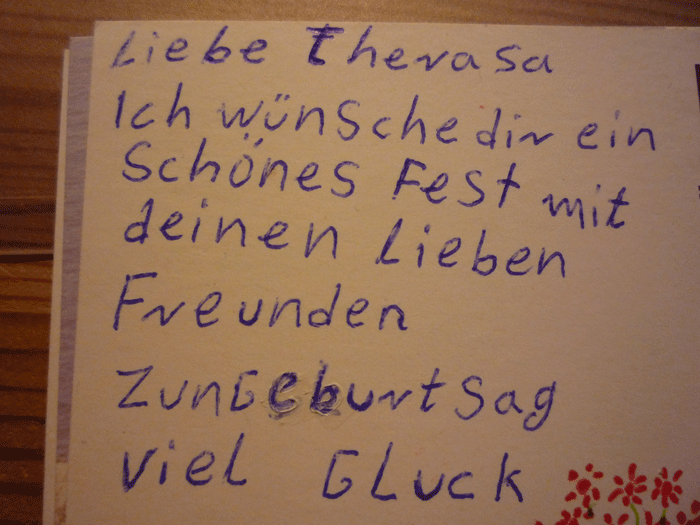 Liebe Therasa
Ich wünsche dir ein
Schönes Fest mit
deinen Lieben
Freunden
ZunGeburtsag
Viel Gluck